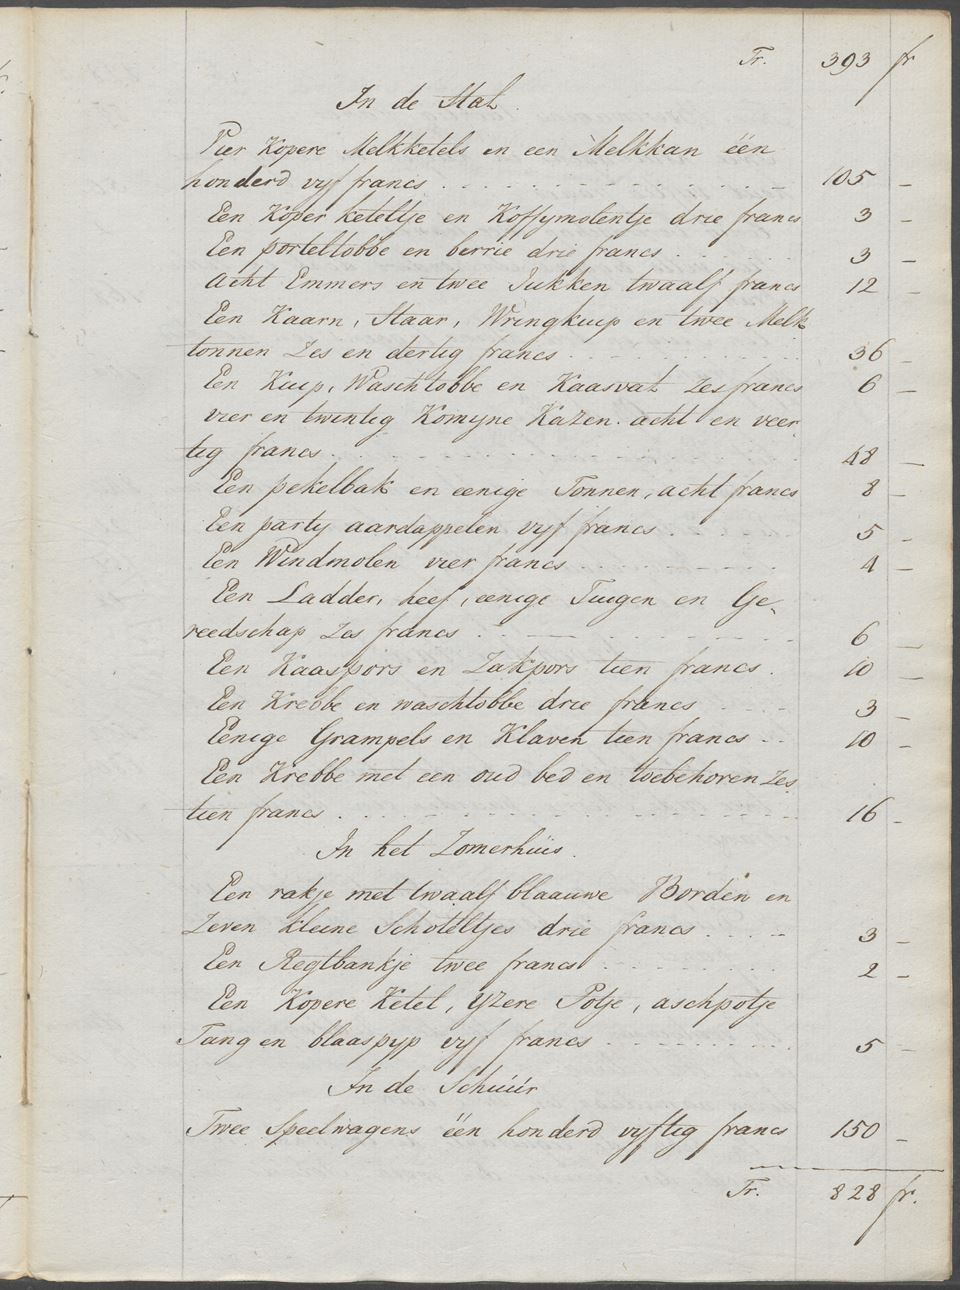 Tr. 393 fr
In de Stal
Vier Kopere Melkketels en een Melkkan één
honderd vyf francs . . . . . . . 105 –
Een Koper keteltje en Koffymolentje drie francs 3 –
Een porteltobbe en berrie drie francs . . . . 3 –
Acht Emmers en twee Jukken twaalf francs 12 –
Een Kaarn, Staar, Wringkuip en twee Melk
tonnen Zes en dertig francs . . . . . . . 36 –
Een Kuip, Waschtobbe en Kaasvat Zes francs 6 –
vier en twintig Komyne Kazen. acht en veer
tig francs . . . . . . . 48 –
Een pekelbak en eenige Tonnen, acht francs 8 –
Een party aardappelen vyf francs . . . 5 –
Een Windmolen vier francs . . . . . 4 –
Een Ladder, heef, eenige Tuigen en Ge-
reedschap Zes francs . . . . . . . 6 –
Een Kaaspors en Zakpors tien francs . 10 –
Een Krebbe en waschtobbe drie francs . . . 3 –
Eenige Grampels en Klaven tien francs . . 10 –
Een Krebbe met een oud bed en toebehoren Zes
tien francs . . . . . . . 16 –
In het Zomerhuis.
Een rakje met twaalf blaauwe Borden en
Zeven kleine Schoteltjes drie francs . . . 3 –
Een Regtbankje twee francs . . . . . . 2 –
Een Kopere Ketel, yzere Potje, aschpotje
Tang en blaaspyp vyf francs . . . . . . 5 –
In de Schuur
Twee Speelwagens één honderd vyftig francs 150 –
Tr. 828 fr.